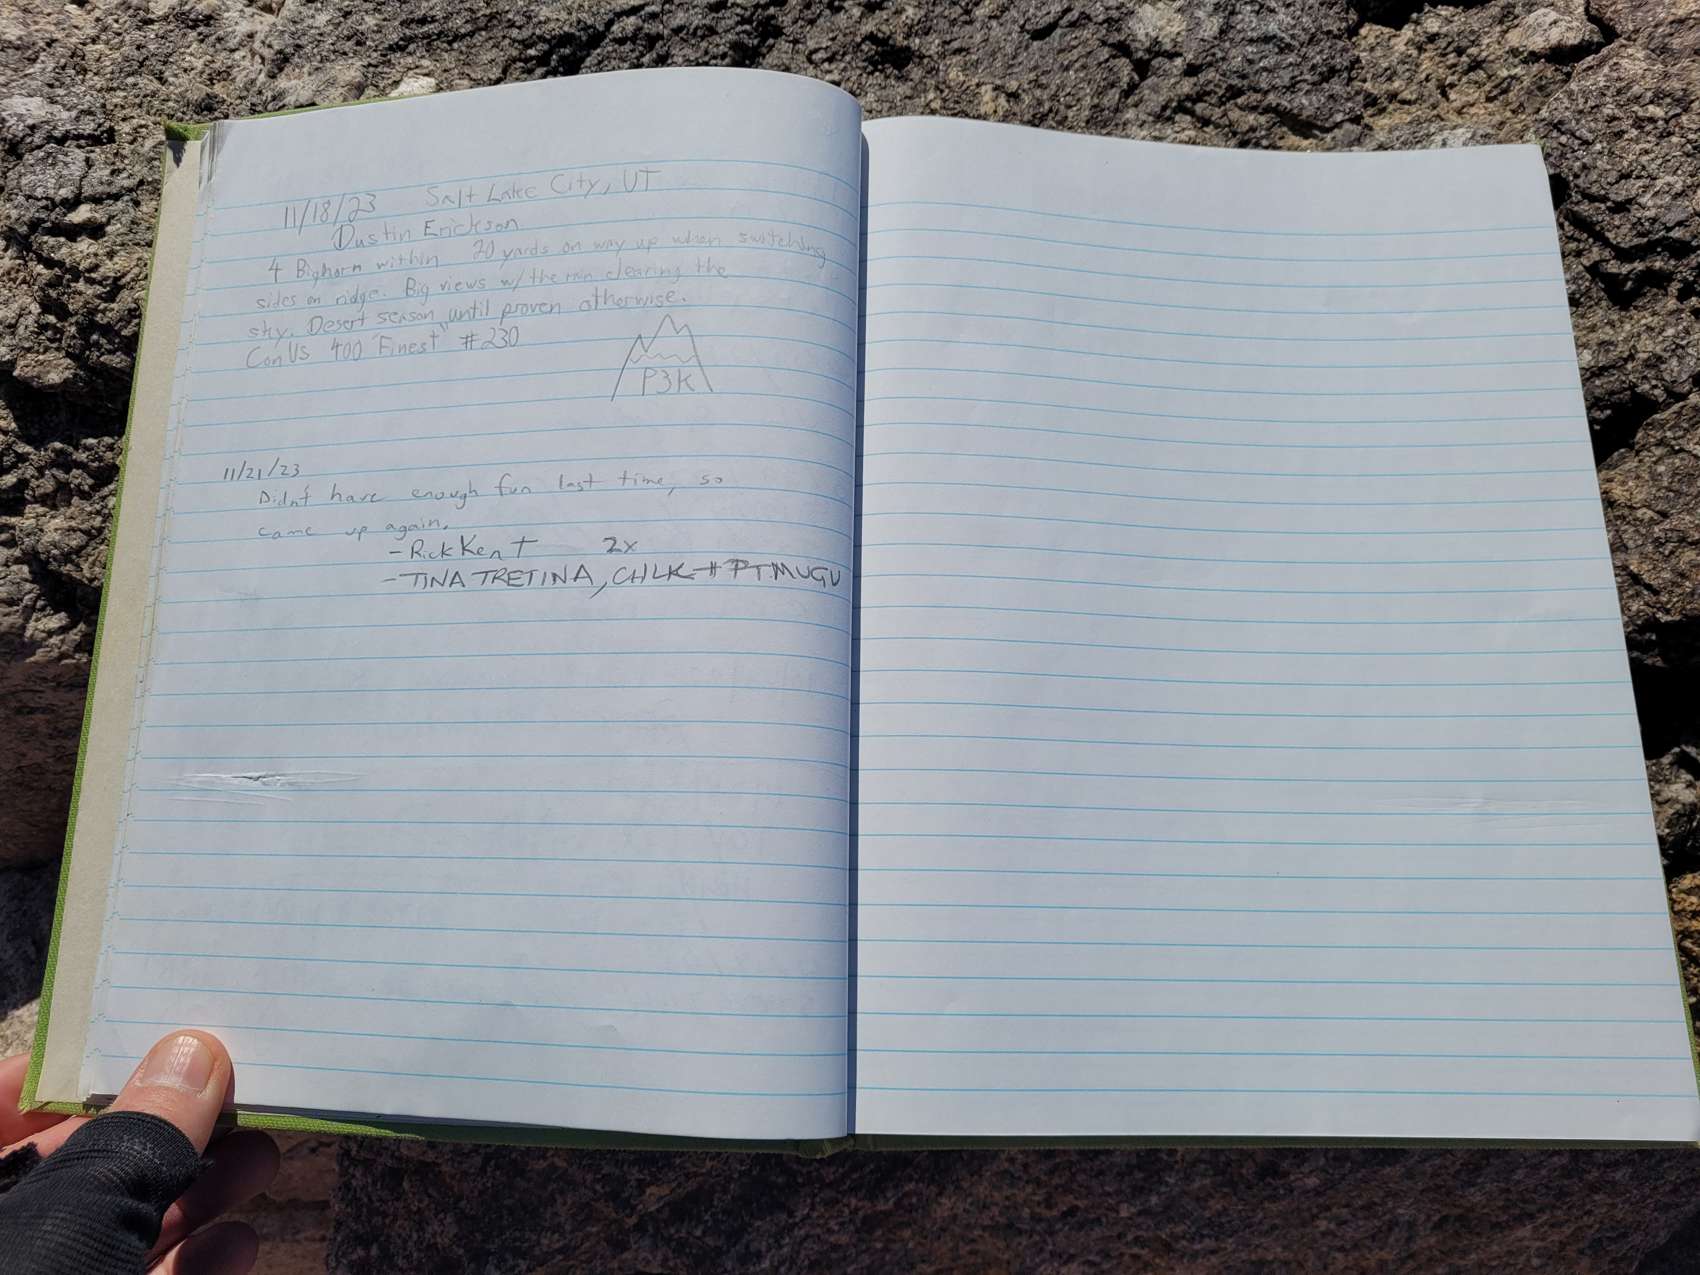 11/18/23 Salt Lake City, UT
Dustin Erickson
4 Bighorn within 20 yards on way up when switching
sides on ridge. Big views w/ the rain clearing the
sky. Desert season until proven otherwise.
ConUS 400 "Finest" #230
P3K
11/21/23
Didn't have enough fun last time, so
came up again.
- Rick Kent 2x
- TINA TRETINA, CHLK + PT MUGU